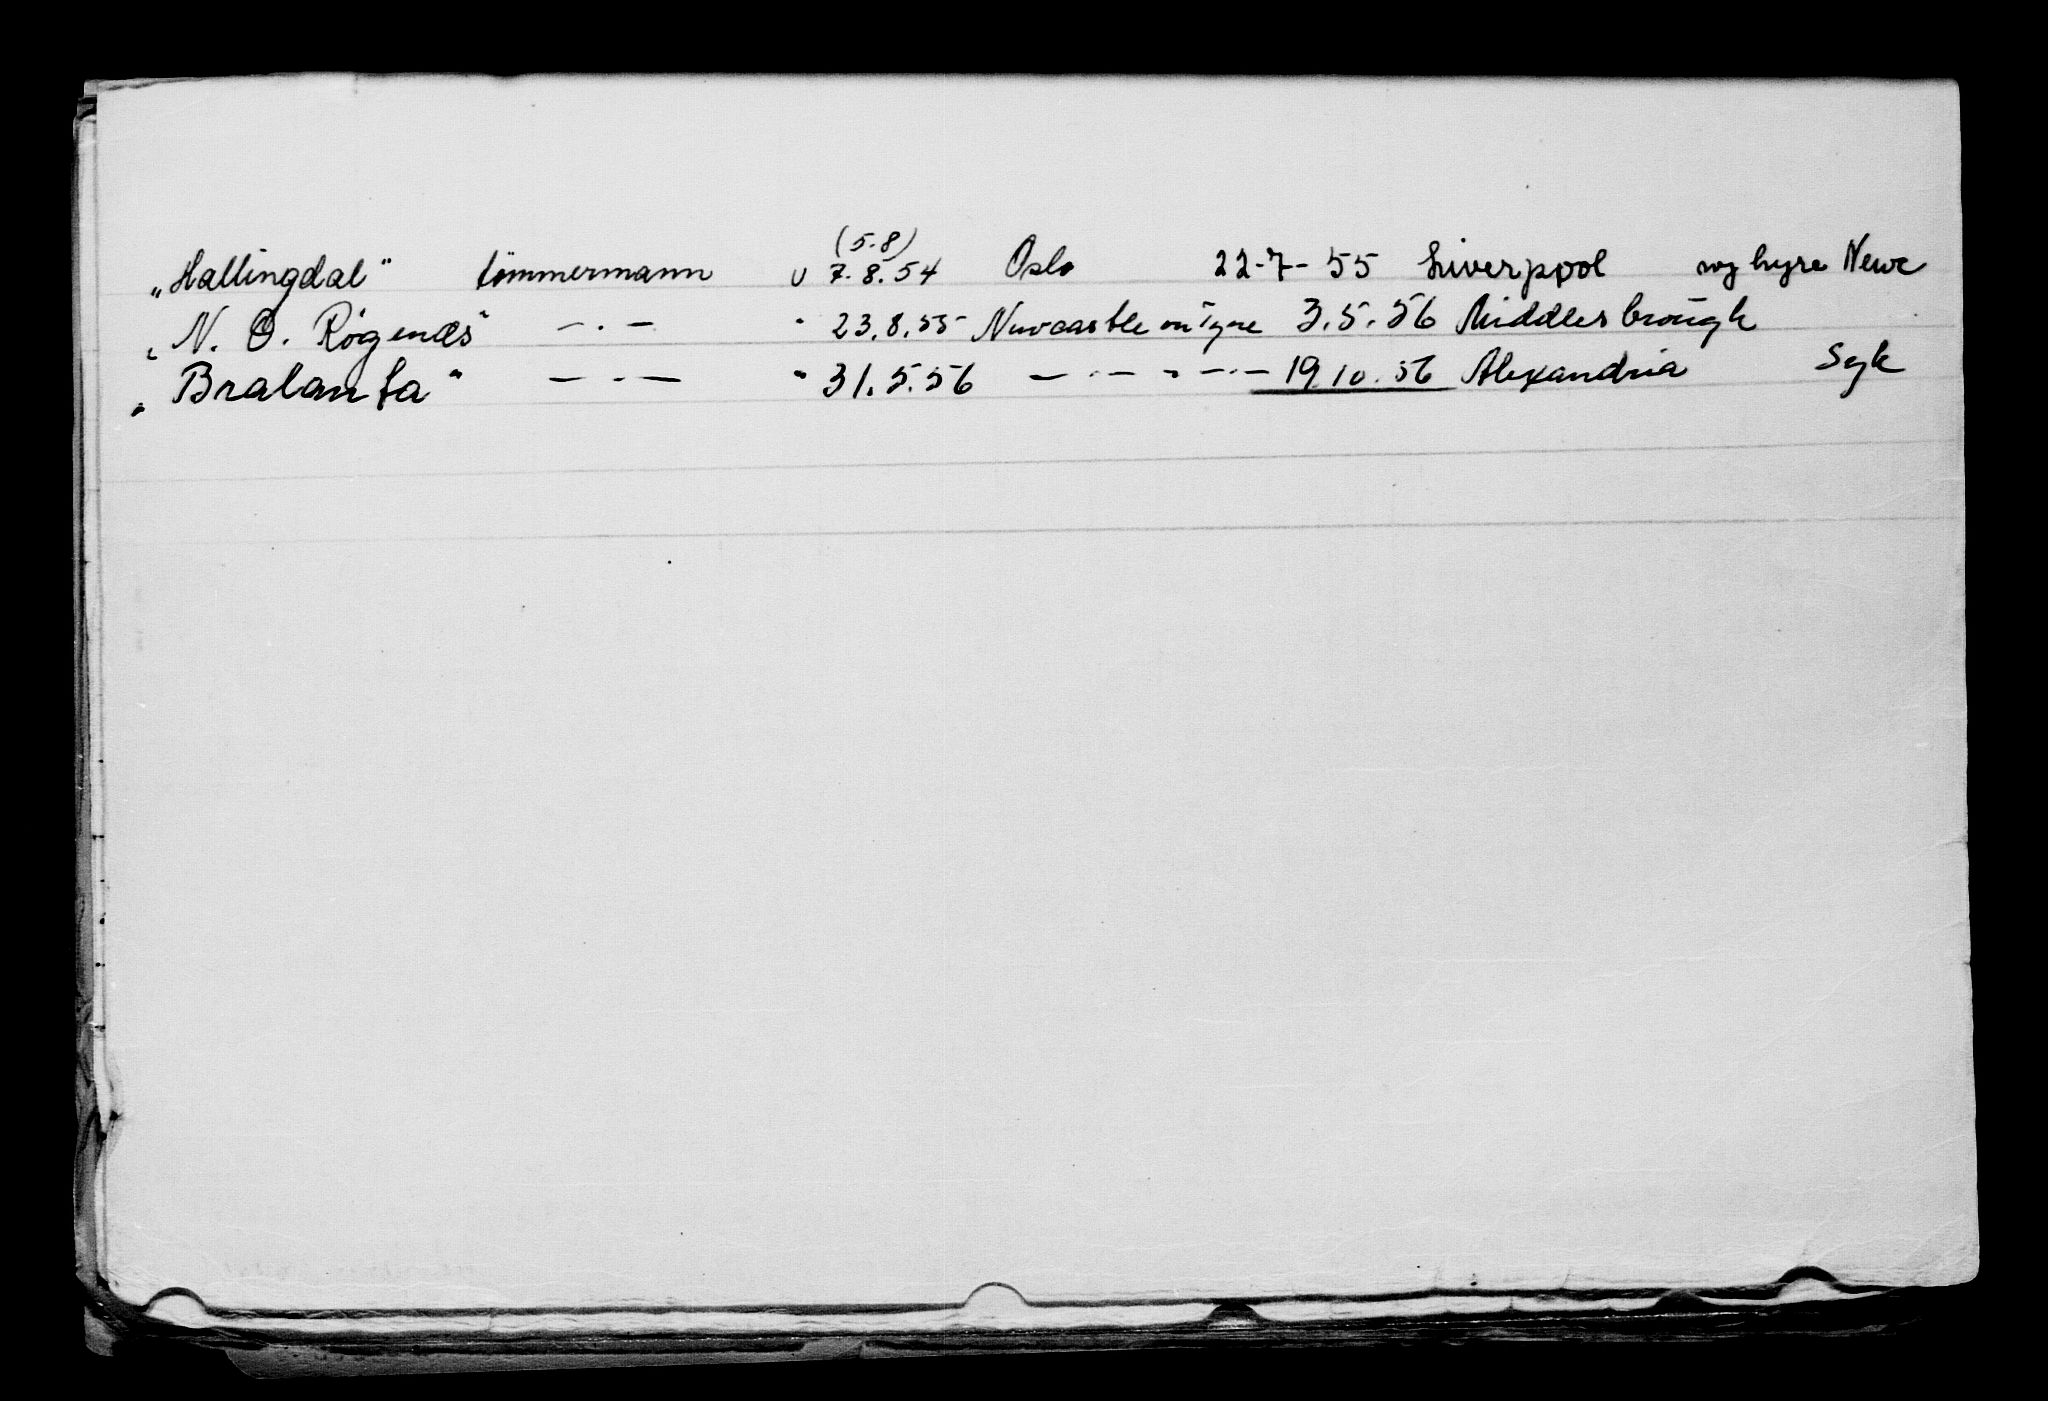 (5.8)
„Hallingdal" tömmermann u 7.8.54 Oslo 22-7-55 Liverpool ny hyre Newc
„N. O. Røgenæs" —.— " 23.8.55 Newcastle on Tyne 3.5.56 Middlesbrough
„Bralanta" —.— " 31.5.56 —.—.—.— 19.10.56 Alexandria Syk